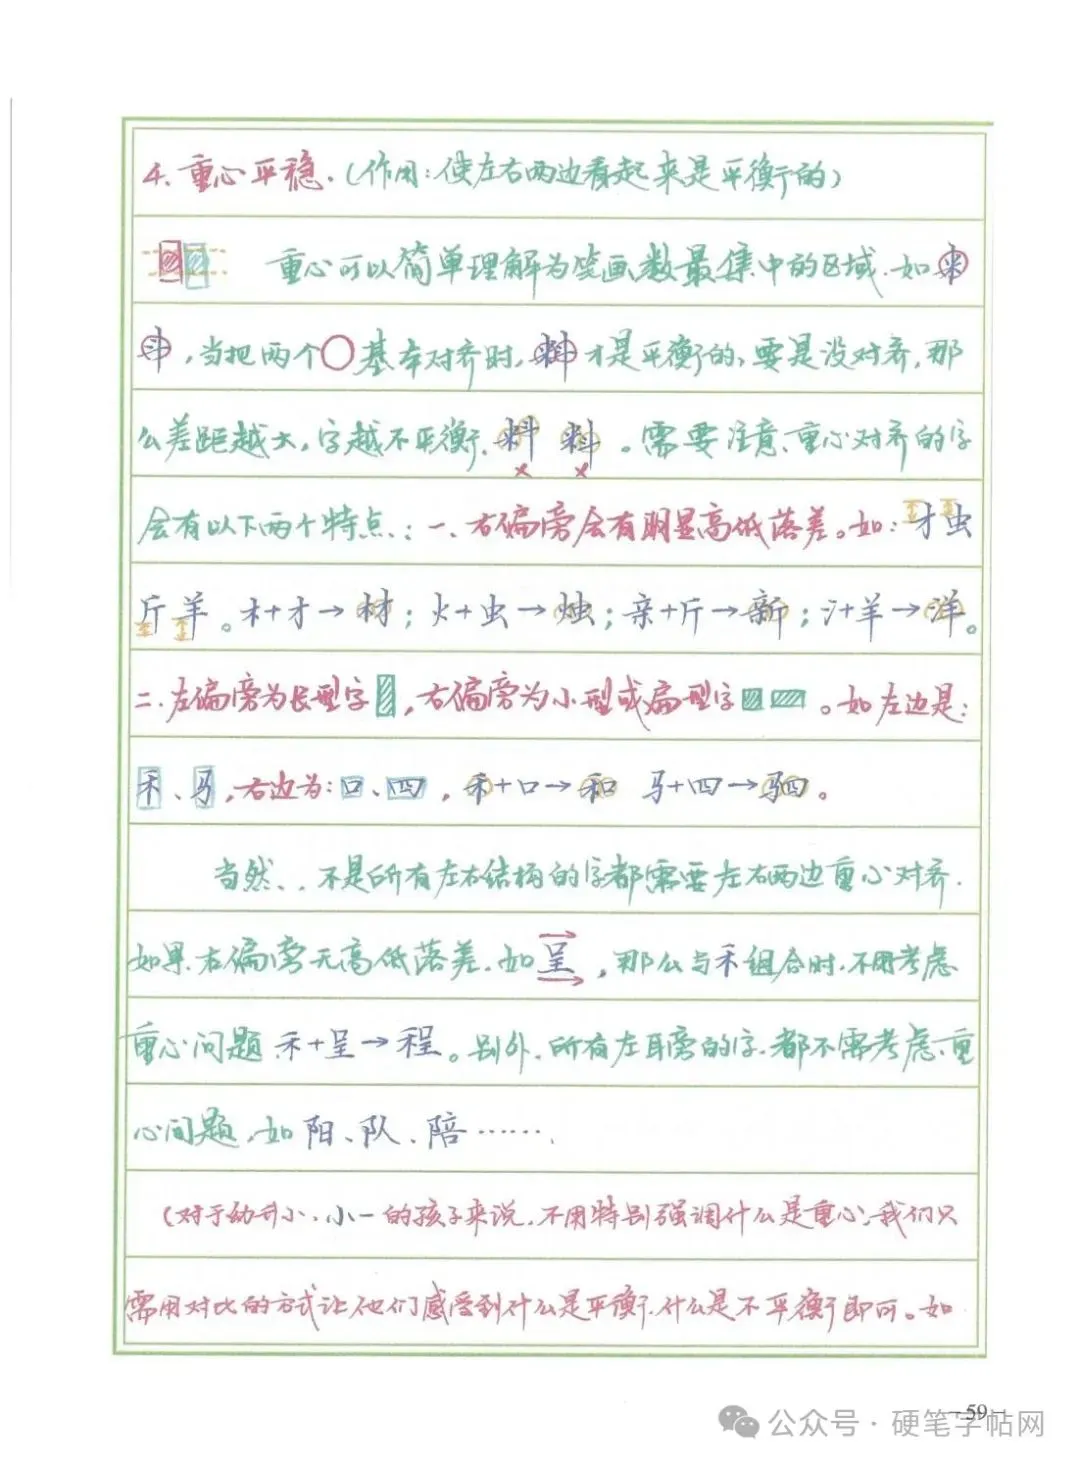 4、重心平稳.(作用:使左右两边看起来是平衡的)
重心可以简单理解为笔画数最集中的区域.如米
斗,当把两个○基本对齐时,料才是平衡的、要是没对齐,那
么差距越大,字越不平衡.料 料。需要注意、重心对齐的字
会有以下两个特点:一、右偏旁会有明显高低落差。如:才虫
斤羊。木+才→材;火+虫→烛;亲+斤→新;氵+羊→洋。
二.左偏旁为长型字,右偏旁为小型或扁型字。如左边是:
禾、马,右边为:口、四,禾+口→和 马+四→驷。
当然、.不是所有左右结构的字都需要左右两边重心对齐.
如果右偏旁无高低落差.如呈,那么与禾组合时.不用考虑
重心问题.禾+呈→程。另外.所有左耳旁的字.都不需考虑重
心问题,如阳、队、陪…….
(对于幼升小、小一的孩子来说,不用特别强调什么是重心,我们只
需用对比的方式让他们感受到什么是平衡.什么是不平衡即可。如
—59—
公众号·硬笔字帖网